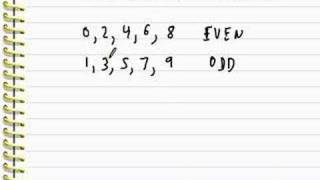 0, 2, 4, 6, 8 EVEN
1, 3, 5, 7, 9 ODD